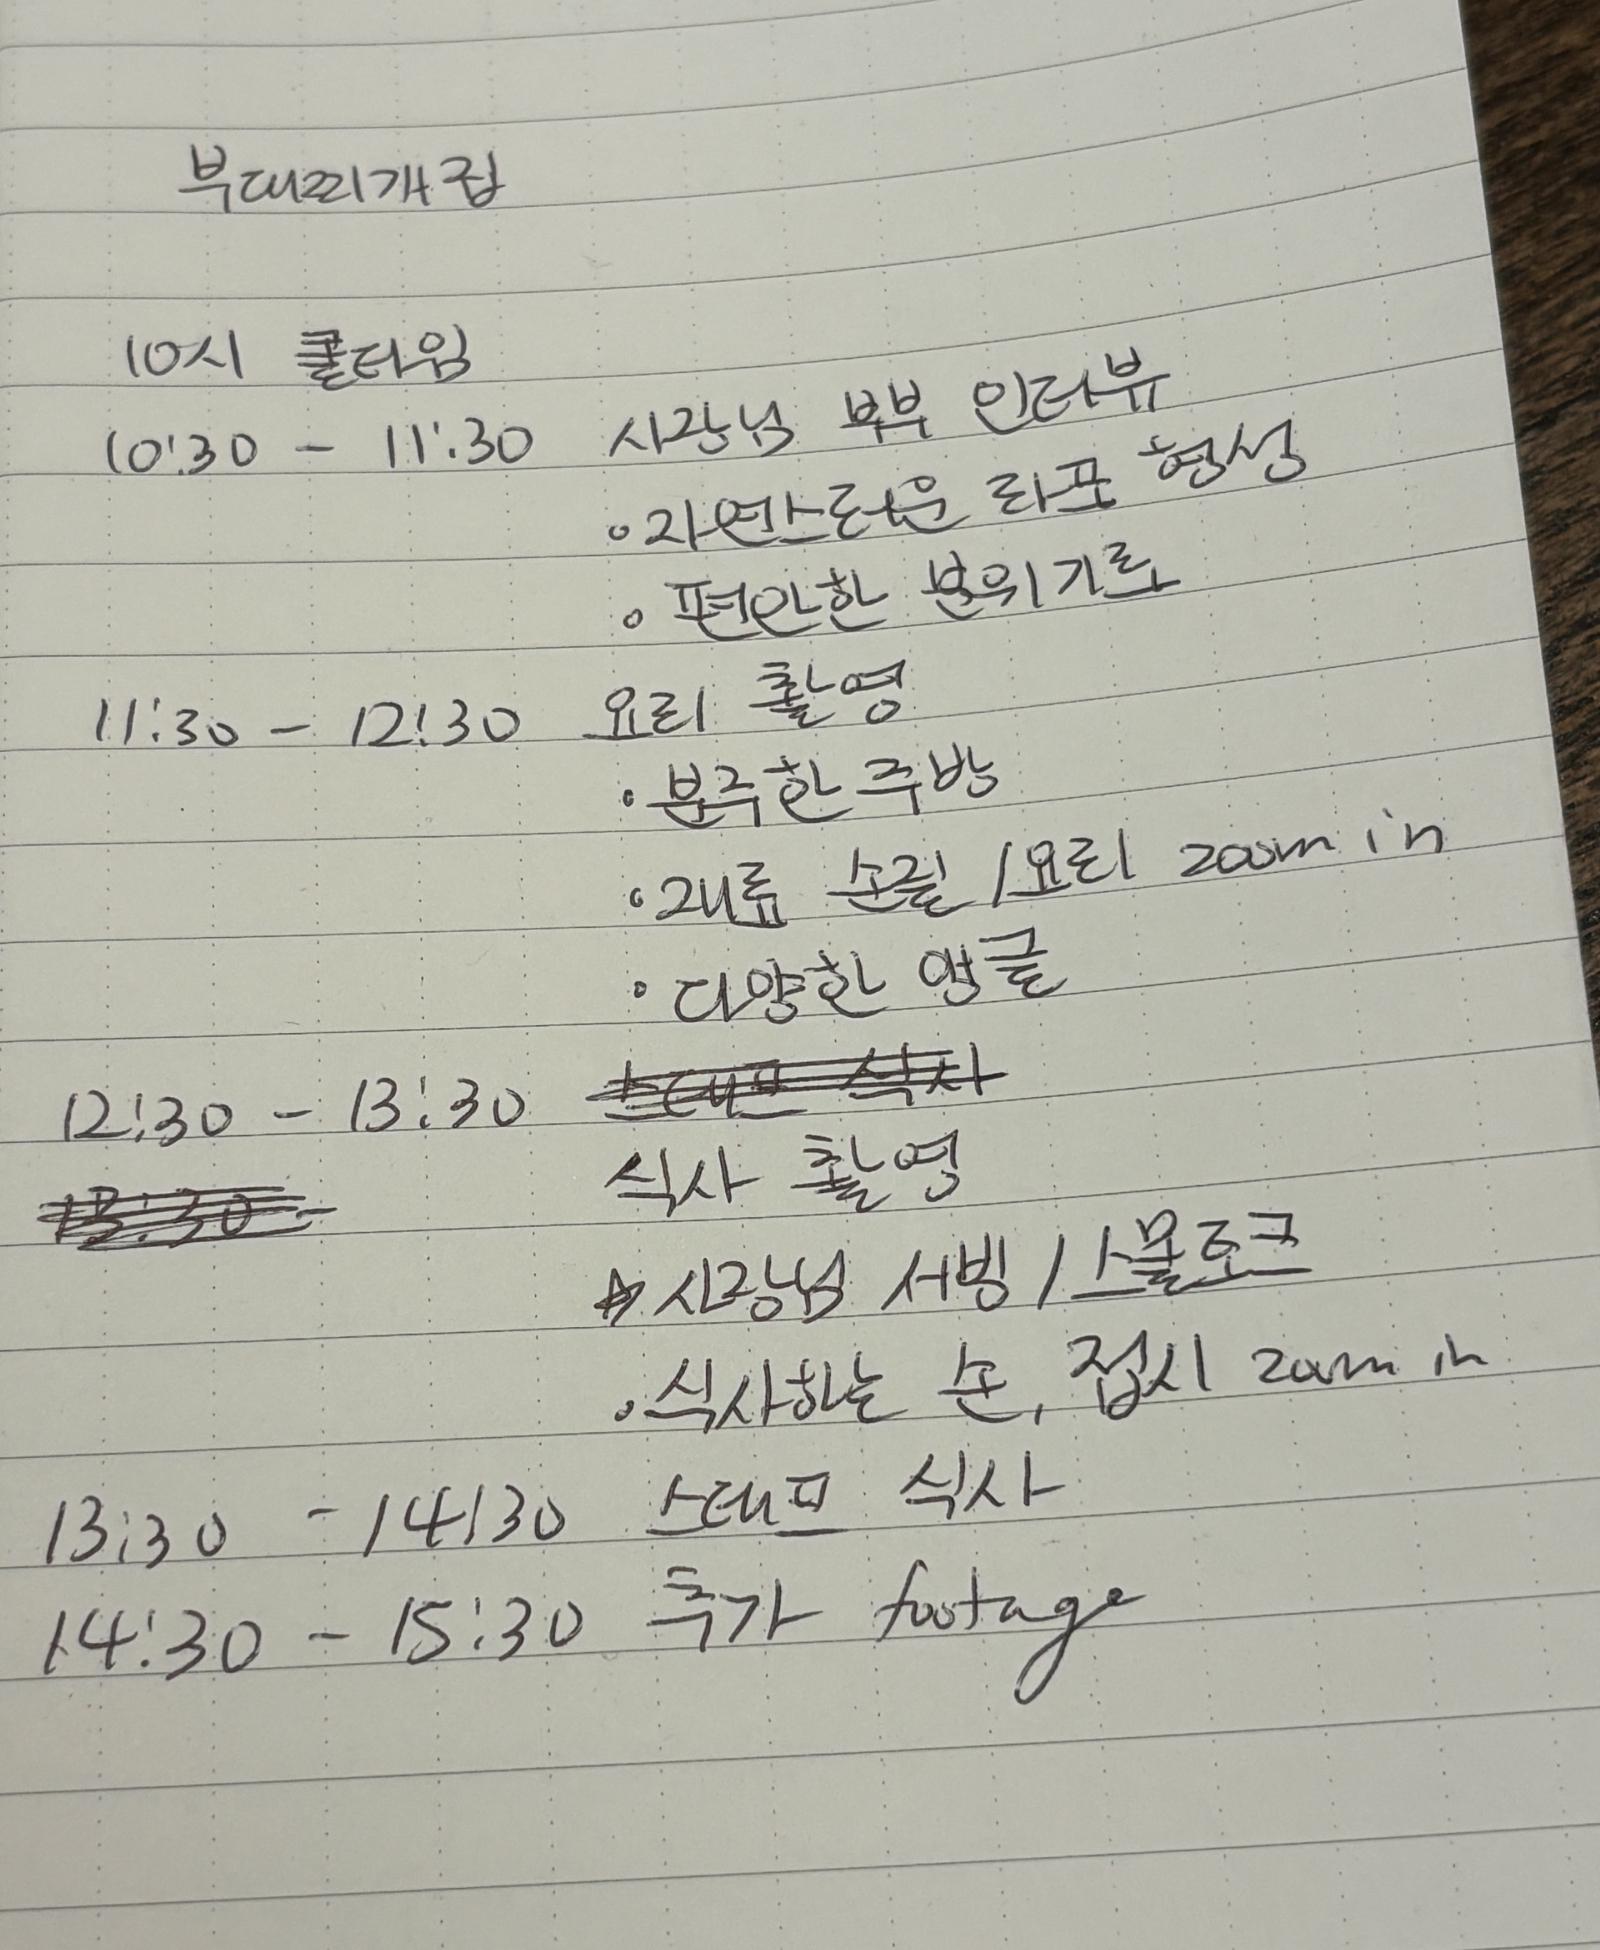 부대찌개집
10시 콜타임
10:30 - 11:30 사장님 부부 인터뷰
• 자연스러운 라포 형성
• 편안한 분위기로
11:30 - 12:30 요리 촬영
• 분주한 주방
• 재료 손질 / 요리 zoom in
• 다양한 앵글
12:30 - 13:30 스태프 식사
13:30 -
식사 촬영
☆ 사장님 서빙 / 스몰토크
• 식사하는 손, 접시 zoom in
13:30 - 14:30 스태프 식사
14:30 - 15:30 추가 footage